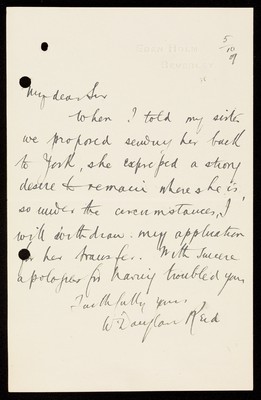 5/10/9
My dear Sir
When I told my sister
we proposed sending her back
to York, she expressed a strong
desire to remain where she is,
so under the circumstances, I
will withdraw my application
for her transfer. With sincere
apologies for having troubled you
Faithfully yours,
W Douglas Reid